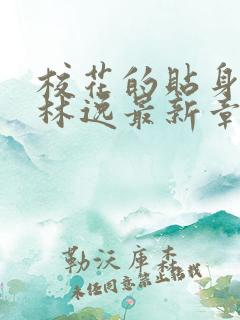 校花的贴身
林逸最新章
勒沃库森
未经同意禁止转载